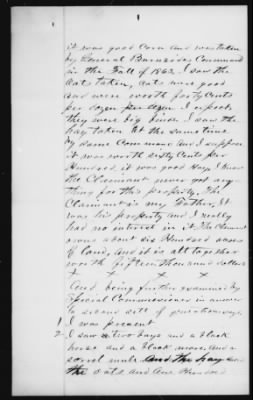 it was good Corn and was taken
by General Burnsides Command
in the Fall of 1863. I saw the
Oats taken, Oats were good
and were worth forty Cents
per dozen per dozen I expect
they were big binds I saw the
hay taken at the same time
by same Command And I suppose
it was worth sixty Cents per
Hundred, it was good Hay I know
the Claimant never got any
thing for this property, The
Claimant is my Father, It
was his property and I really
had no interest in it. The Claimant
owns about six Hundred acres
of land, And it is all together
worth fifteen thousand dollars
+ + x x
And being further examined by
Special Commissioner in answer
to second sett of questions says
1 I was present.
2 I saw two bays and a black
horse and a black mare And a
sorrel mule And the hay and
the Oats and One Hundred